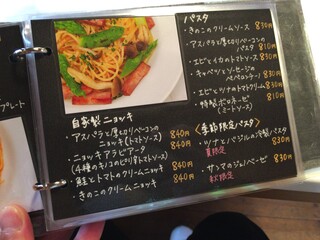 プレート
自家製 ニョッキ
・アスパラと厚切りベーコンの
ニョッキ(トマトソース) 840円
・ニョッキ アラビアータ 840円
(4種のキノコのピリ辛トマトソース)
・鮭とトマトのクリームニョッキ 840円
・きのこのクリームニョッキ 840円
パスタ
・きのこのクリームソース 830円
・アスパラと厚切りベーコンの
パスタ 810円
・エビとイカのトマトソース 830円
・キャベツとソーセージの
ペペロンチーノ 830円
・エビとツナのトマトクリーム 830円
・特製ボロネーゼ 810円
(ミートソース)
〈季節限定パスタ〉
・ツナとバジルの冷製パスタ
夏限定 830円
・サンマのジェノベーゼ
秋限定 830円